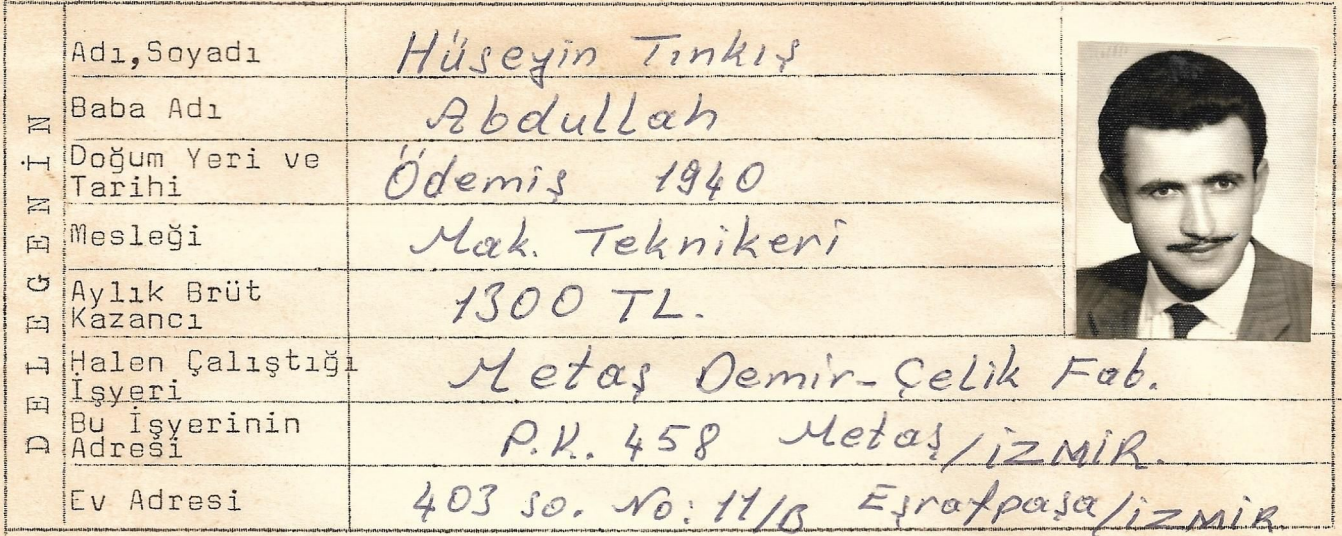 DELEGENİN
Adı,Soyadı Hüseyin Tınkış
Baba Adı Abdullah
Doğum Yeri ve
Tarihi Ödemiş 1940
Mesleği Mak. Teknikeri
Aylık Brüt
Kazancı 1300 TL.
Halen Çalıştığı
İşyeri Metaş Demir-Çelik Fab.
Bu İşyerinin
Adresi P.K. 458 Metaş/İZMİR.
Ev Adresi 403 so. No: 11/B Eşrafpaşa/İZMİR